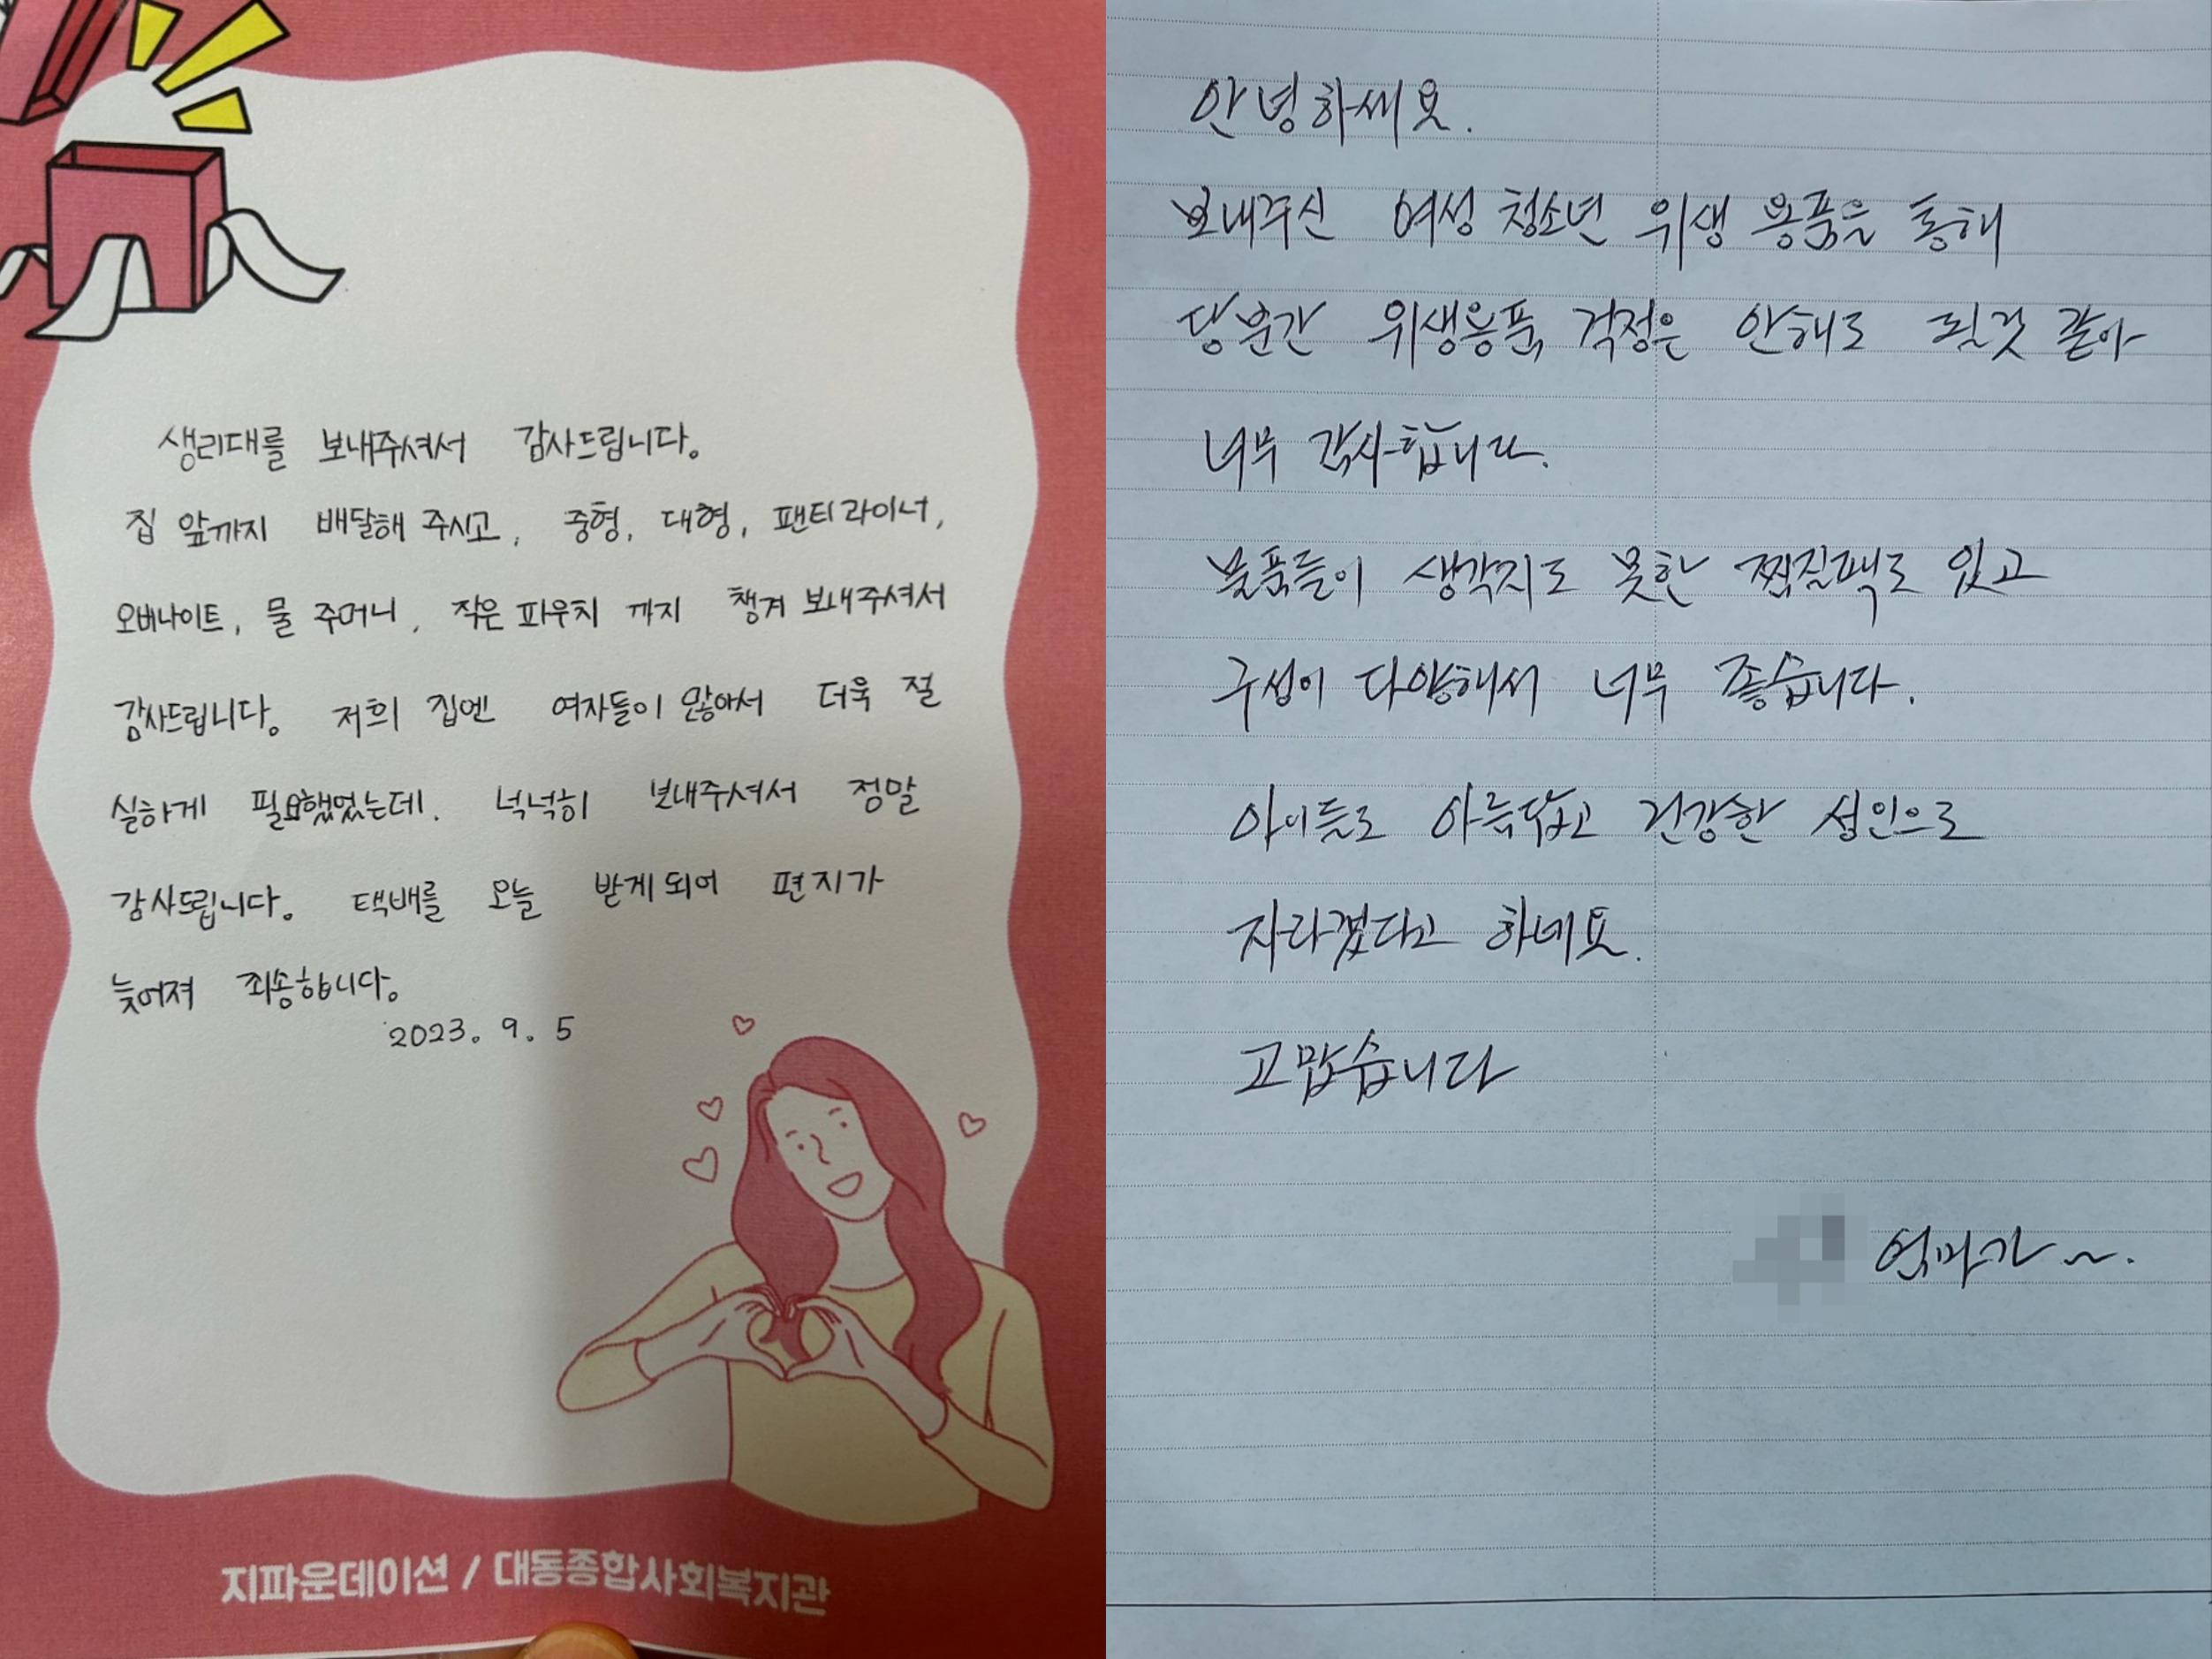 생리대를 보내주셔서 감사드립니다.
집 앞까지 배달해 주시고, 중형, 대형, 팬티라이너,
오버나이트, 물 주머니, 작은 파우치 까지 챙겨 보내주셔서
감사드립니다. 저희 집엔 여자들이 많아서 더욱 절
실하게 필요했었는데. 넉넉히 보내주셔서 정말
감사드립니다. 택배를 오늘 받게되어 편지가
늦어져 죄송합니다.
2023. 9. 5
지파운데이션 / 대동종합사회복지관
안녕하세요.
보내주신 여성 청소년 위생 용품을 통해
당분간 위생용품 걱정은 안해도 될것 같아
너무 감사합니다.
물품들이 생각지도 못한 찜질팩도 있고
구성이 다양해서 너무 좋습니다.
아이들도 아름답고 건강한 성인으로
자라겠다고 하네요.
고맙습니다
엄마가 ~.